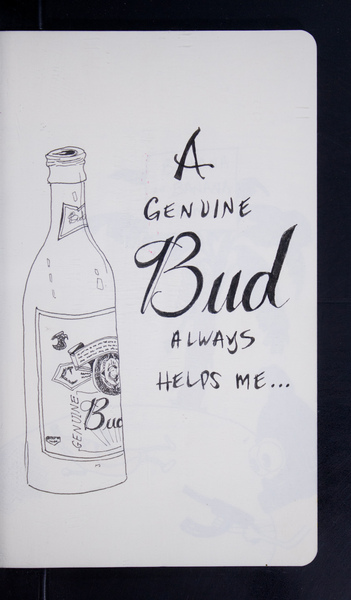 A
GENUINE
Bud
ALWAYS
HELPS ME...
GENUINE
Bud